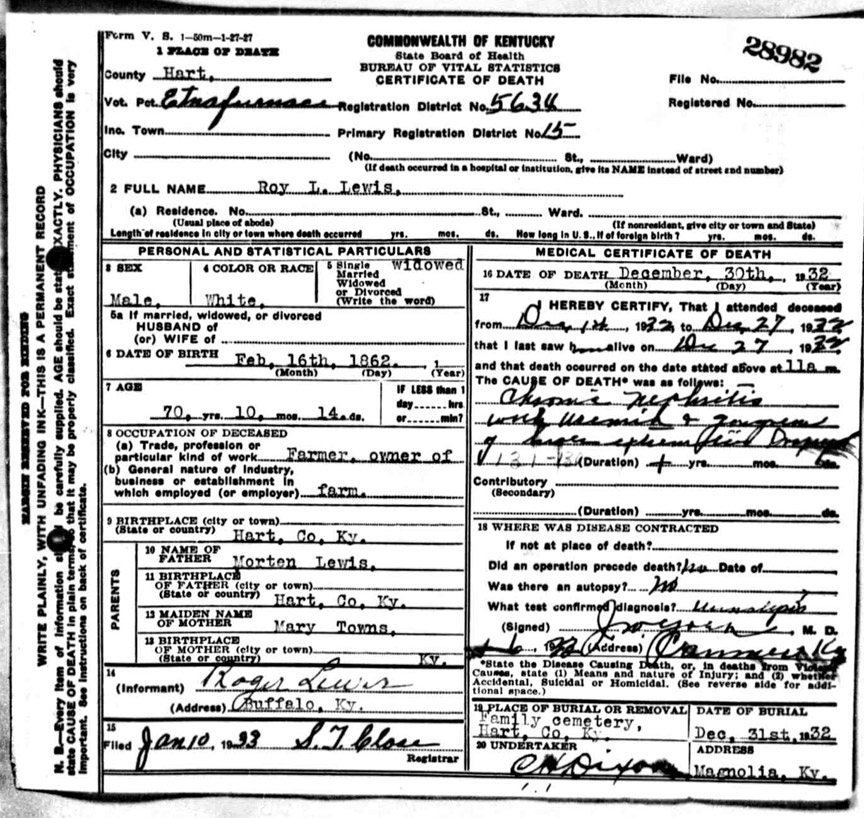 Form V. S. 1-50m-1-27-27
1 PLACE OF DEATH
COMMONWEALTH OF KENTUCKY
State Board of Health
BUREAU OF VITAL STATISTICS
CERTIFICATE OF DEATH
28982
County Hart,
File No.
Vot. Pct. Etnafurnace Registration District No. 5634
Registered No.
Inc. Town Primary Registration District No. 15
City (No. St., Ward)
(If death occurred in a hospital or institution, give its NAME instead of street and number)
2 FULL NAME Roy L. Lewis,
(a) Residence. No. St., Ward.
(Usual place of abode) (If nonresident, give city or town and State)
Length of residence in city or town where death occurred yrs. mos. ds. How long in U. S., if of foreign birth? yrs. mos. ds.
PERSONAL AND STATISTICAL PARTICULARS
3 SEX Male,
4 COLOR OR RACE White,
5 Single Married Widowed or Divorced (Write the word) widowed
5a If married, widowed, or divorced
HUSBAND of
(or) WIFE of
6 DATE OF BIRTH Feb, 16th, 1862, 1
(Month) (Day) (Year)
7 AGE 70, yrs. 10, mos. 14. ds.
IF LESS than 1
day hrs
or min?
8 OCCUPATION OF DECEASED
(a) Trade, profession or
particular kind of work Farmer, owner of
(b) General nature of industry,
business or establishment in
which employed (or employer) farm.
9 BIRTHPLACE (city or town)
(State or country) Hart, Co, Ky.
PARENTS
10 NAME OF
FATHER Morten Lewis,
11 BIRTHPLACE
OF FATHER (city or town)
(State or country) Hart, Co, Ky.
12 MAIDEN NAME
OF MOTHER Mary Towns,
13 BIRTHPLACE
OF MOTHER (city or town)
(State or country) Ky.
14
(Informant) Roger Lewis
(Address) Buffalo, Ky.
15
Filed Jan 10, 1933 S. T. Close
Registrar
MEDICAL CERTIFICATE OF DEATH
16 DATE OF DEATH December, 30th, 1932
(Month) (Day) (Year)
17
I HEREBY CERTIFY, That I attended deceased
from Dec 14, 1932 to Dec 27, 1932
that I last saw h alive on Dec 27, 1932
and that death occurred on the date stated above at 11a m.
The CAUSE OF DEATH* was as follows:
Chronic Nephritis
with Uremia & gangrene
of
(Duration) yrs. mos. ds.
Contributory
(Secondary)
(Duration) yrs. mos. ds.
18 WHERE WAS DISEASE CONTRACTED
If not at place of death?
Did an operation precede death? no Date of
Was there an autopsy? no
What test confirmed diagnosis? Urinalysis
(Signed) M. D.
(Address) Canmer Ky
*State the Disease Causing Death, or, in deaths from Violent
Causes, state (1) Means and nature of Injury; and (2) whether
Accidental, Suicidal or Homicidal. (See reverse side for addi-
tional space.)
19 PLACE OF BURIAL OR REMOVAL
Family cemetery,
Hart, Co, Ky.
DATE OF BURIAL
Dec, 31st, 1932
20 UNDERTAKER
C H Dixon
ADDRESS
Magnolia, Ky.
MARGIN RESERVED FOR BINDING
WRITE PLAINLY, WITH UNFADING INK—THIS IS A PERMANENT RECORD
N. B.—Every item of information should be carefully supplied. AGE should be stated EXACTLY. PHYSICIANS should
state CAUSE OF DEATH in plain terms, so that it may be properly classified. Exact statement of OCCUPATION is very
important. See instructions on back of certificate.